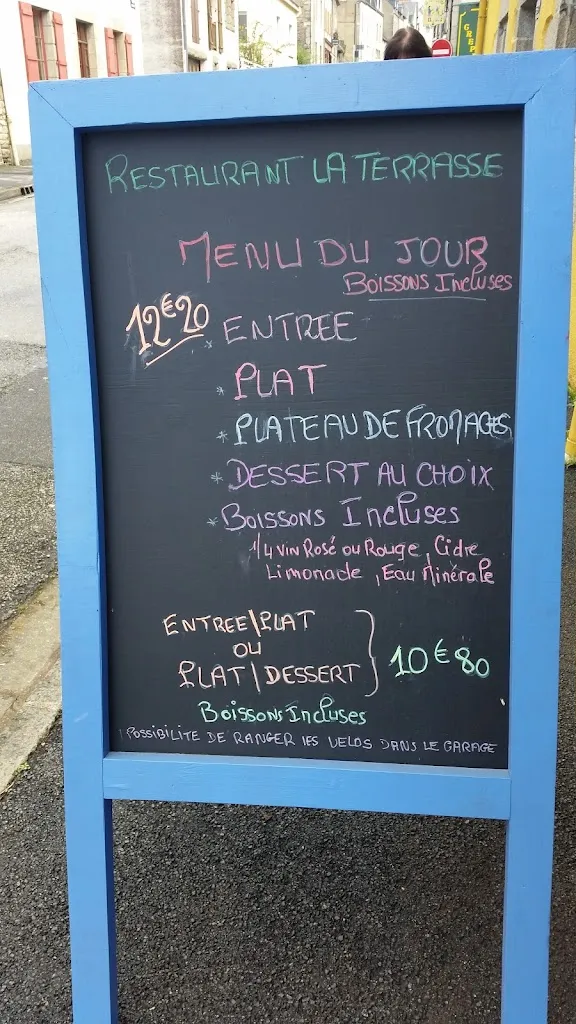 CREP
RESTAURANT LA TERRASSE
MENU DU JOUR
BOISSONS INCLUSES
12€20
* ENTREE
* PLAT
* PLATEAU DE FROMAGES
* DESSERT AU CHOIX
* BOISSONS INCLUSES
1/4 VIN ROSé OU ROUGE, Cidre
Limonade, EAU MINÉRALE
ENTREE\PLAT
OU
PLAT|DESSERT
10€80
BOISSONS INCLUSES
POSSIBILITE DE RANGER LES VELOS DANS LE GARAGE